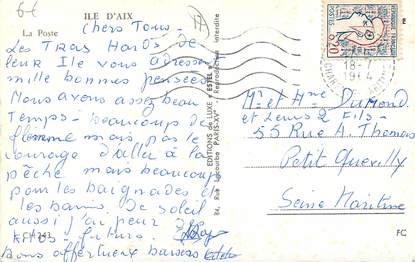 6-f
ILE D'AIX
La Poste
Chers Tous
Les Tras Haros de
leur Ile vous adressent
mille bonnes pensées
Nous avons assez beau
Temps - beaucoup de
flemme mais pas le
courage d'aller à la
pêche mais beaucoup
pour les baignades et
les bains. De soleil
aussi j'ai peur
Kilos - futurs.
Bons affectueux baisers
H 243
EDITIONS de LUXE "ESTEL"
PARIS-XVe - Reproduction interdite
POSTES
0,20
18-7
1964
Mr et Mme Dumond
et Leurs 2 Fils -
55 Rue A. Thomas
Petit Quevilly
Seine Maritime
FC